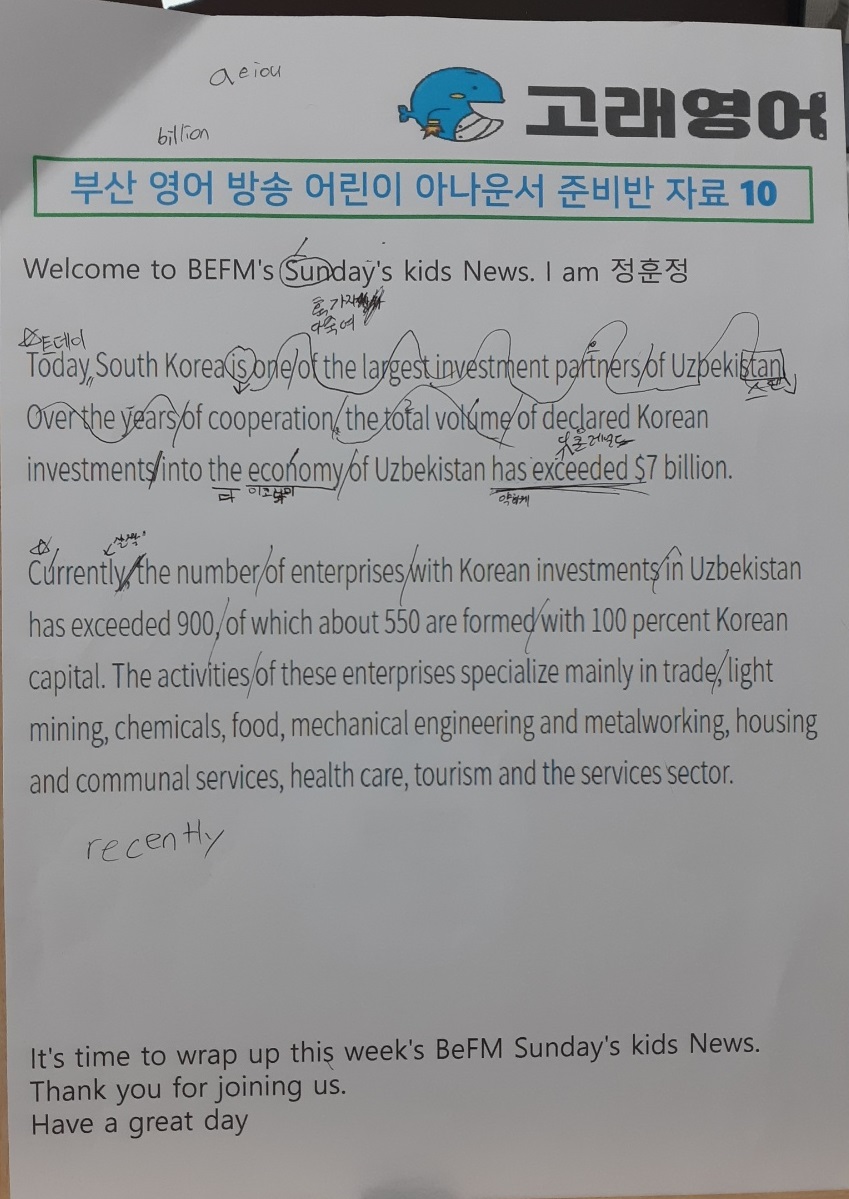 aeiou
고래영어
billion
부산 영어 방송 어린이 아나운서 준비반 자료 10
Welcome to BEFM's Sunday's kids News. I am 정훈정
투데이
Today, South Korea is one of the largest investment partners of Uzbekistan
Over the years of cooperation, the total volume of declared Korean
investments into the economy of Uzbekistan has exceeded $7 billion.
더
약하게
살짝
Currently, the number of enterprises with Korean investments in Uzbekistan
has exceeded 900, of which about 550 are formed with 100 percent Korean
capital. The activities of these enterprises specialize mainly in trade, light
mining, chemicals, food, mechanical engineering and metalworking, housing
and communal services, health care, tourism and the services sector.
recently
It's time to wrap up this week's BeFM Sunday's kids News.
Thank you for joining us.
Have a great day